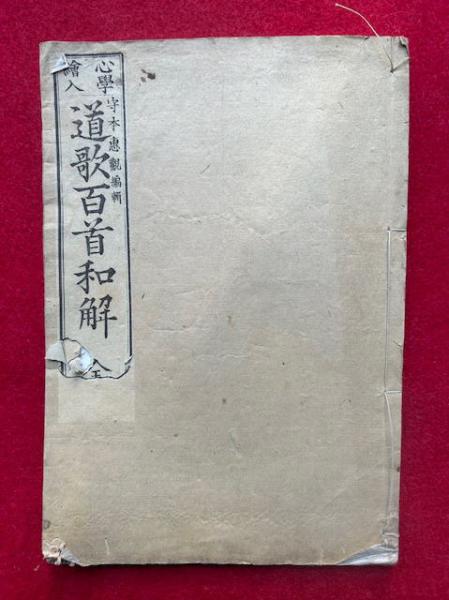 心學
繪入
守本惠觀編輯
道歌百首和解 全